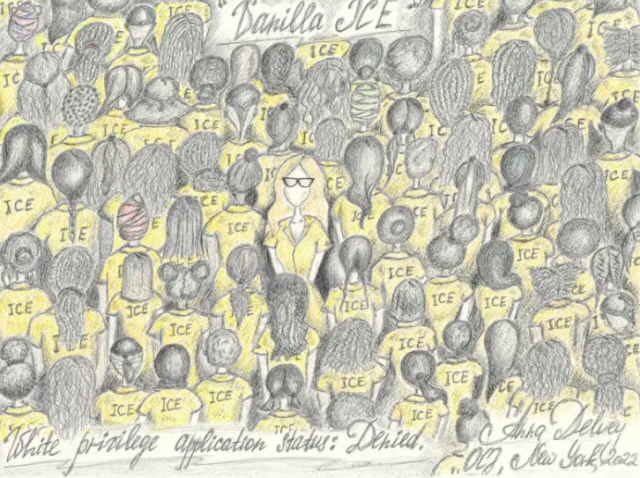 "Vanilla ICE"
ICE ICE ICE ICE
ICE ICE ICE
ICE ICE ICE
ICE ICE ICE ICE
ICE ICE ICE ICE
ICE ICE ICE ICE ICE
ICE ICE ICE ICE ICE
ICE ICE ICE ICE
Anna Delvey
White privilege application status: Denied.
OCJ, New York, 2022